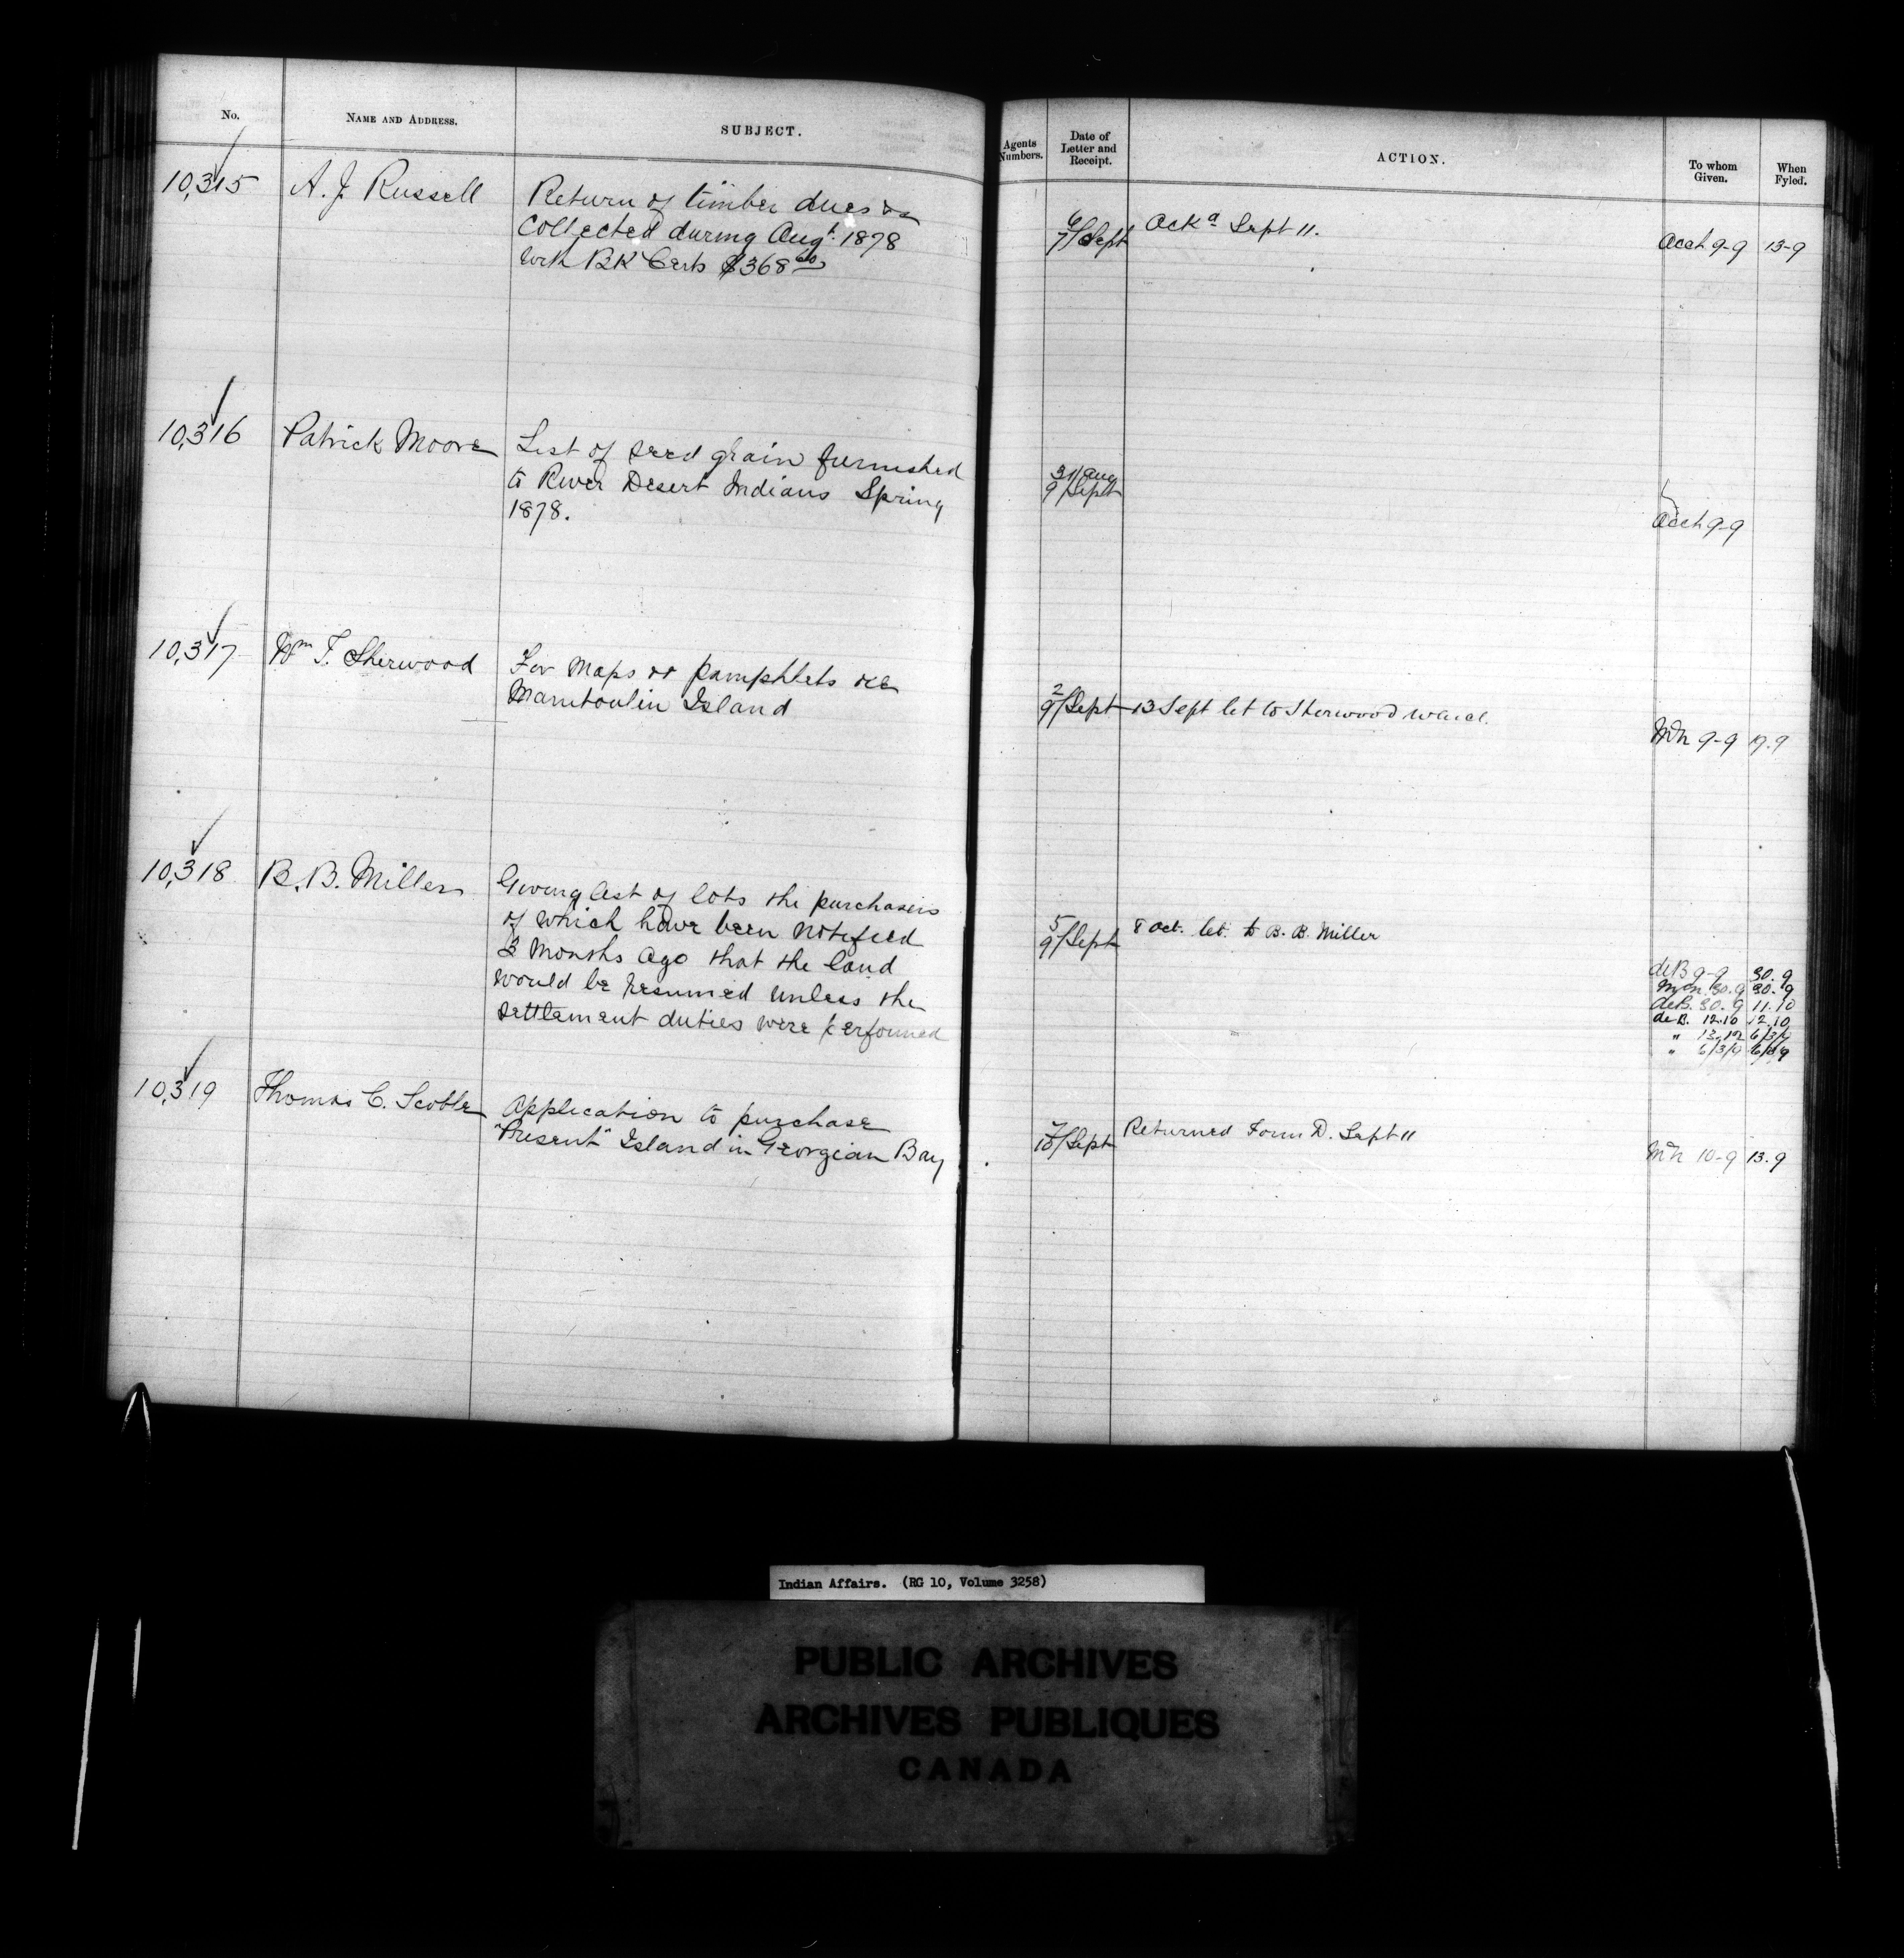 No.
NAME AND ADDRESS.
SUBJECT.
Agents Numbers.
Date of Letter and Receipt.
ACTION.
To whom Given.
When Fyled.
10,315
A. J. Russell
Return of timber dues &c
collected during Augt. 1878
with BK Certs $368 60
6
7/Sept
Ackd Sept 11.
Acct 9-9
13-9
10,316
Patrick Moore
List of seed grain furnished
to River Desert Indians Spring
1878.
31/Aug
9/Sept
Acct 9-9
10,317
Wm T. Sherwood
For Maps or pamphlets re
Manitoulin Island
2
9/Sept
13 Sept let to Sherwood
9-9
10,318
B. B. Miller
Giving list of lots the purchasers
of which have been notified
3 months ago that the land
would be resumed unless the
settlement duties were performed
5
9/Sept
8 Oct. let. to B. B. Miller
deB 9-9 30.9
30.9 30.9
deB. 30.9 11.10
de B. 12.10 12.10
" 13.12 6/3/9
" 6/3/9 6/3/9
10,319
Thomas C. Scoble
Application to purchase
"Present" Island in Georgian Bay
7
10/Sept
Returned Form D. Sept 11
10-9 13.9
Indian Affairs. (RG 10, Volume 3258)
PUBLIC ARCHIVES
ARCHIVES PUBLIQUES
CANADA